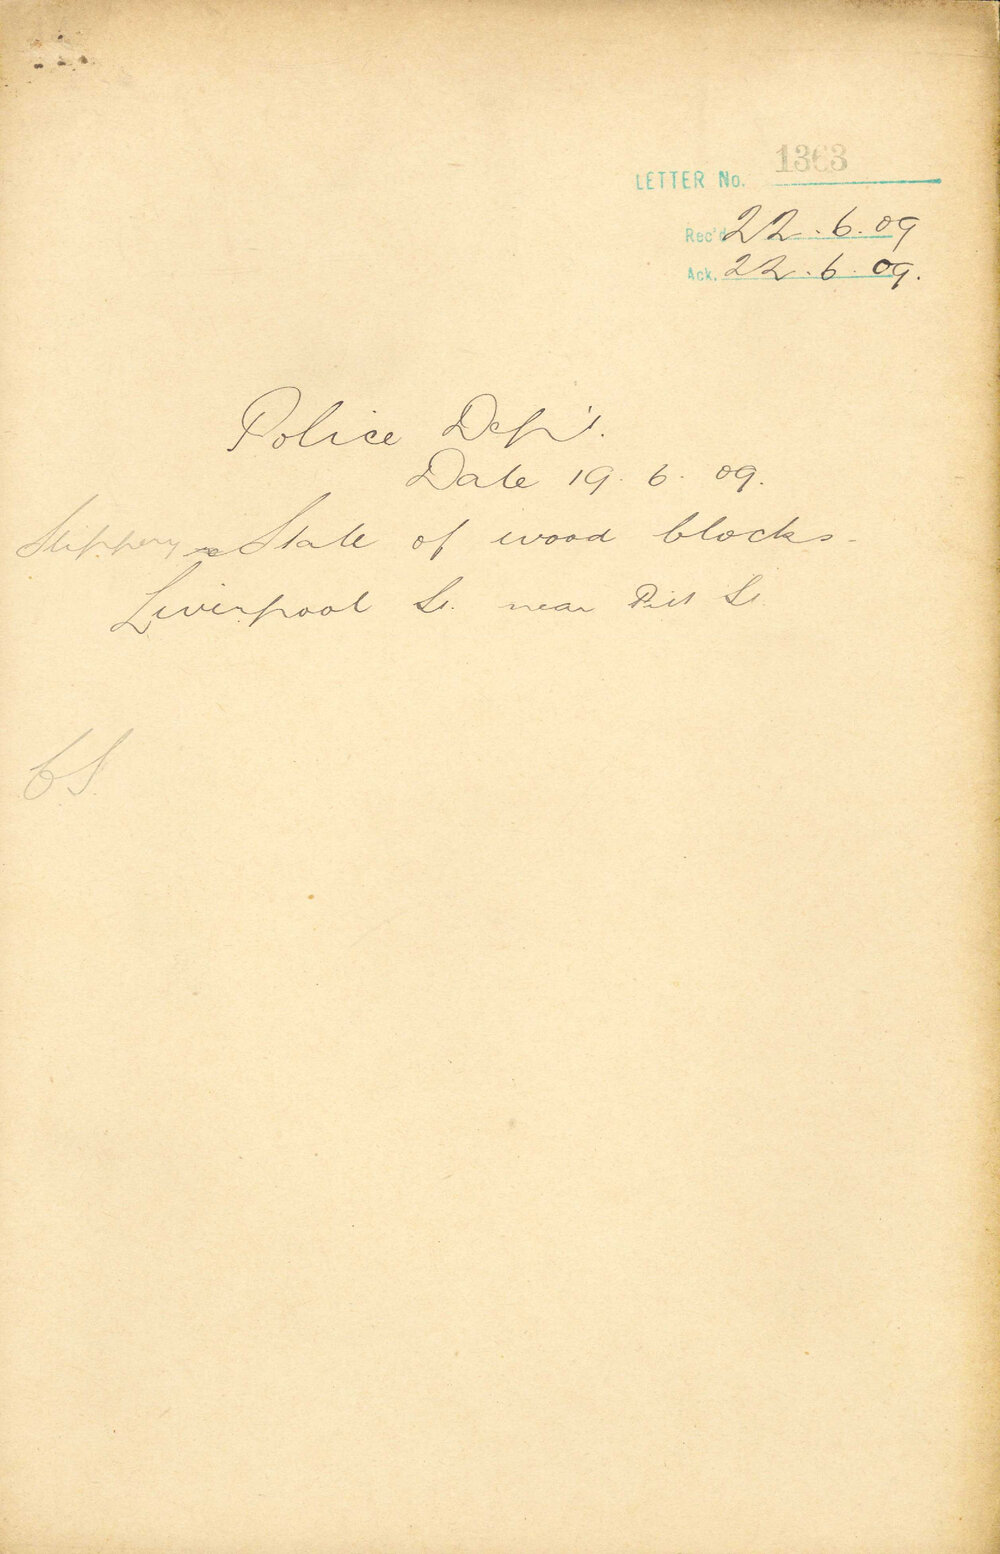 LETTER No. 1363
Rec'd 22.6.09
Ack. 22.6.09.
Police Dep't.
Date 19.6.09.
Slippery State of wood blocks -
Liverpool St. near Pitt St.
C.S.